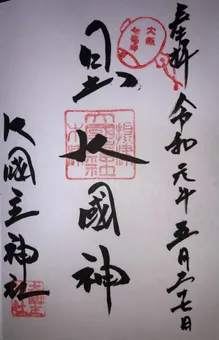 奉拝 令和元年五月二七日
大阪
七福神
日出大國神
大國主神社